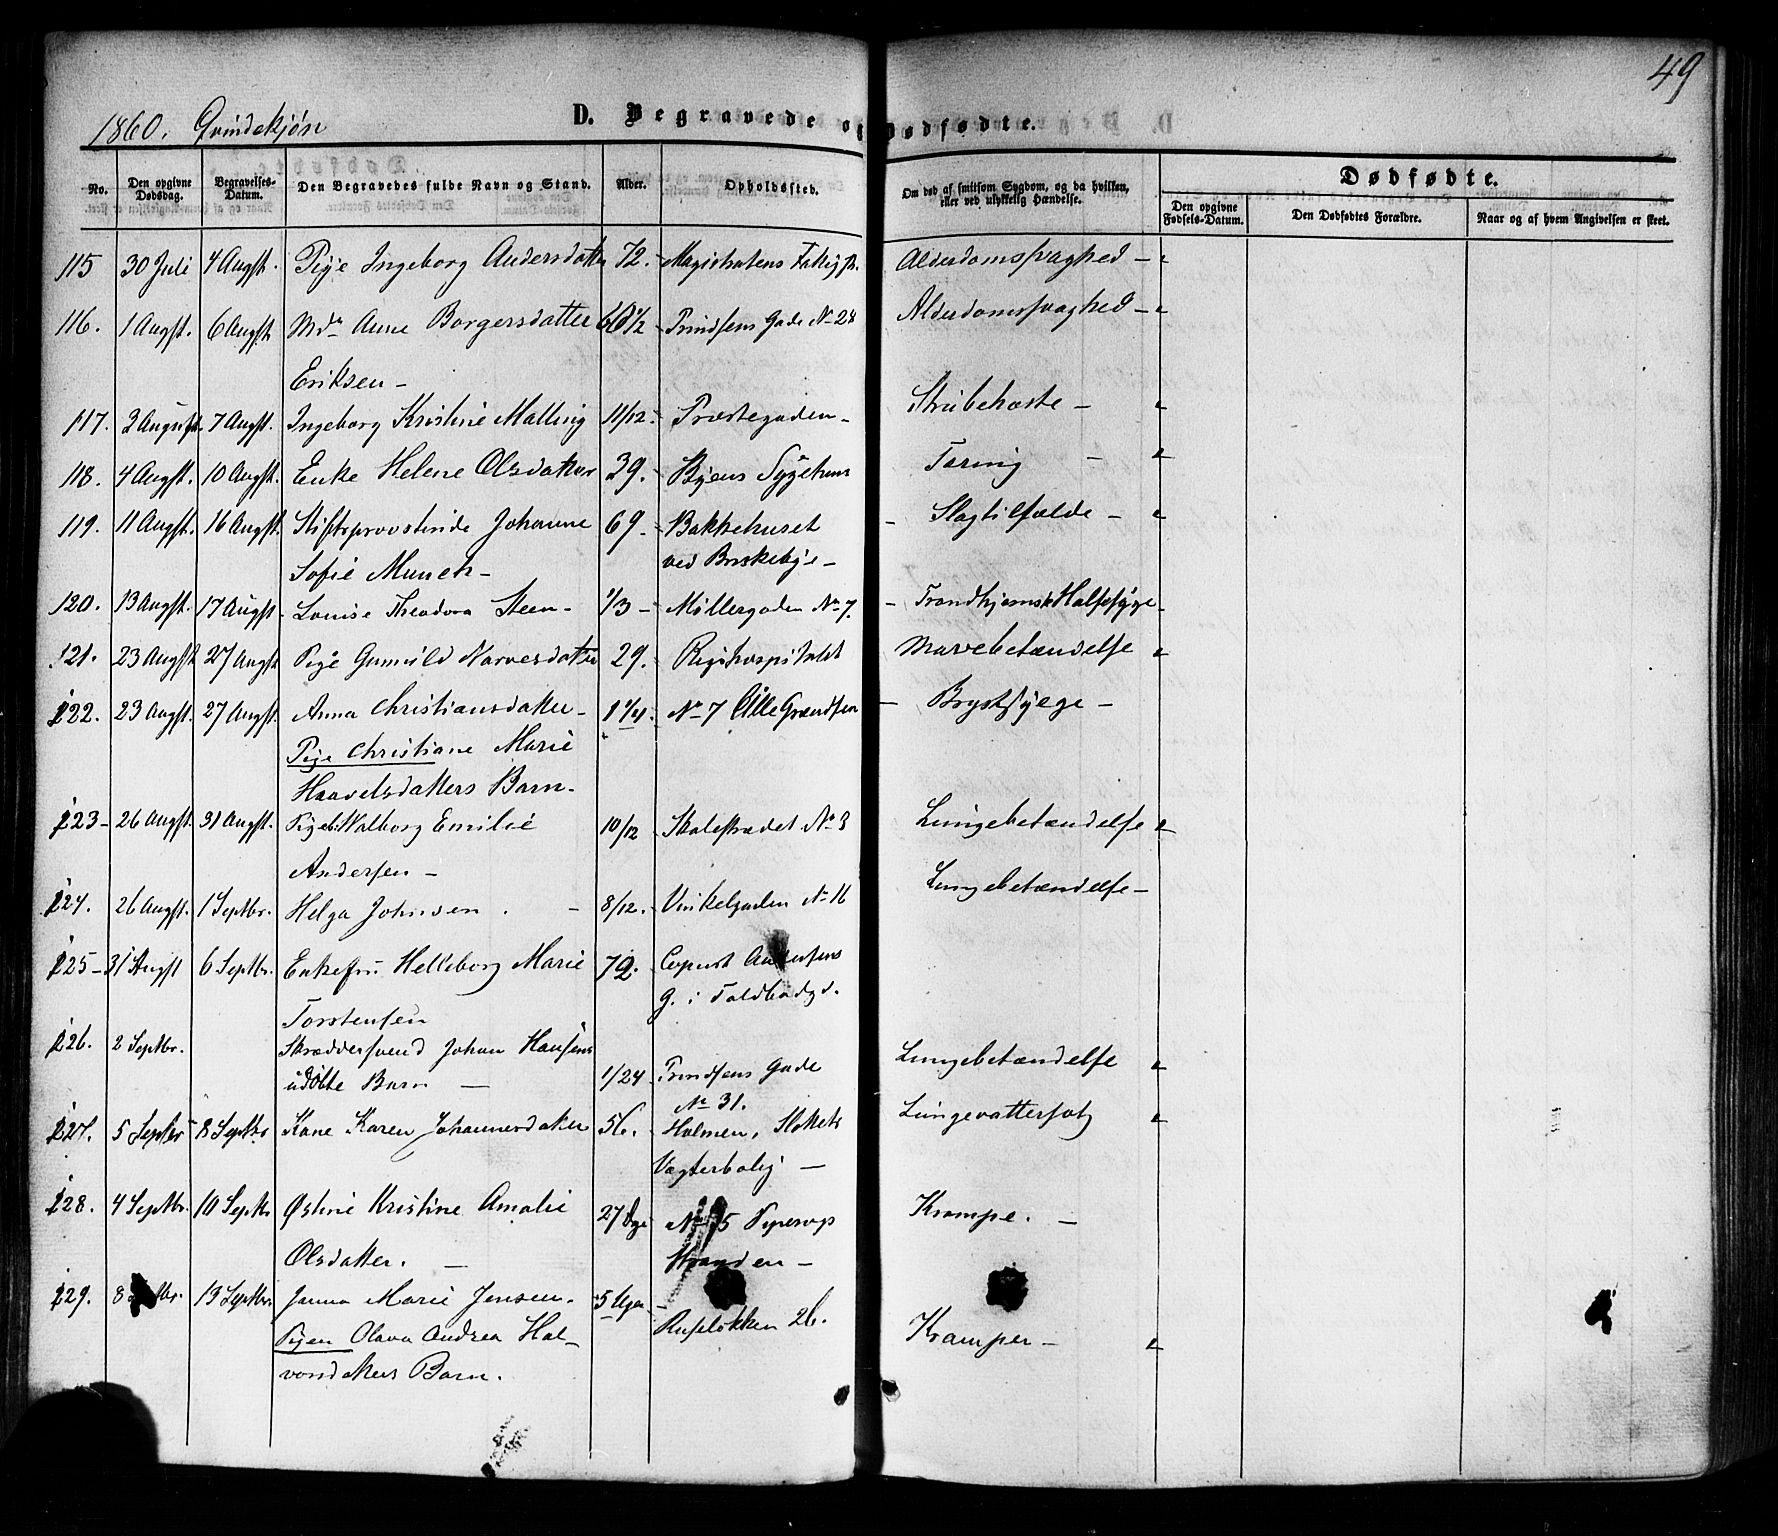 49
1860. Qvindekjøn
D. Begravede og Dødfødte.
No.
Den opgivne Dødsdag.
Begravelses-Datum.
Den Begravedes fulde Navn og Stand.
Alder.
Opholdssted.
Om død af smitsom Sygdom, og da hvilken, eller ved ulykkelig Hændelse.
Dødfødte.
Den opgivne Fødsels-Datum.
Den Dødfødtes Forældre.
Naar og af hvem Angivelsen er skeet.
115 30 Juli 4 Augst. Pige Ingeborg Andersdatter 72. Magistratens Alderdomssvaghed -
116. 1 Augst. 6 Augst. Mdm Anne Borgersdatter 60 1/2 Prindsens Gade No 28 Alderdomssvaghed -
Eriksen -
117. 3 August. 7 Augst. Ingeborg Kristine Malling 11/12. Præstegaden - Strubehoste -
118. 4 Augst. 10 Augst. Enke Helene Olsdatter 39. Byens Sygehus Tæring -
119. 11 Augst. 16 Augst. Stiftsprovstinde Johanne 69. Bakkehuset - Slagtilfælde -
Sofie Munch - ved Briskebye -
120. 13 Augst. 17 Augst. Louise Theodora Steen - 1/3 - Møllergaden No 7. - Trondhjemsk Halssyge -
121. 23 Augst 27 Augst Pige Gunnild Narvesdatter 29. Rigshospitalet Mavebetændelse
122. 23 Augst. 27 Augst. Anna Christiansdatter - 1 1/4. No 7 Lille Grændsen - Brystsyge -
Pige Christiane Marie
Haavelsdatters Barn -
123 - 26 Augst. 31 Augst. Pigeb. Valborg Emilie 10/12 Skolestrædet No 3 Lungebetændelse
Andersen -
124. 26 Augst. 1 Septbr. Helga Johnsen. - 8/12. Vinkelgaden No 16 Lungebetændelse -
125 - 31 Augst 6 Septbr. Enkefru Helleborg Marie 72.
G. i Toldbodgd.
Torstensen
126. 2 Septbr. Skræddersvend Johan Hansens
udøbte Barn - 1/24 Prindsens Gade Lungebetændelse
No 31.
127. 5 Septbr 8 Septbr Kone Karen Johannesdatter 56. Holmen, Slottets Lungevattersot
Vægterbolig -
128. 4 Septbr. 10 Septb Østine Kristine Amalie 27 Dge No 5 Pipervigs Krampe. -
Olsdatter. - Stranden -
129. 8 Septbr. 13 Septbr. Janna Marie Jensen. 5 Uger - Ruseløkken 26. Kramper -
Pigen Olava Andrea Hal-
vorsdatters Barn.